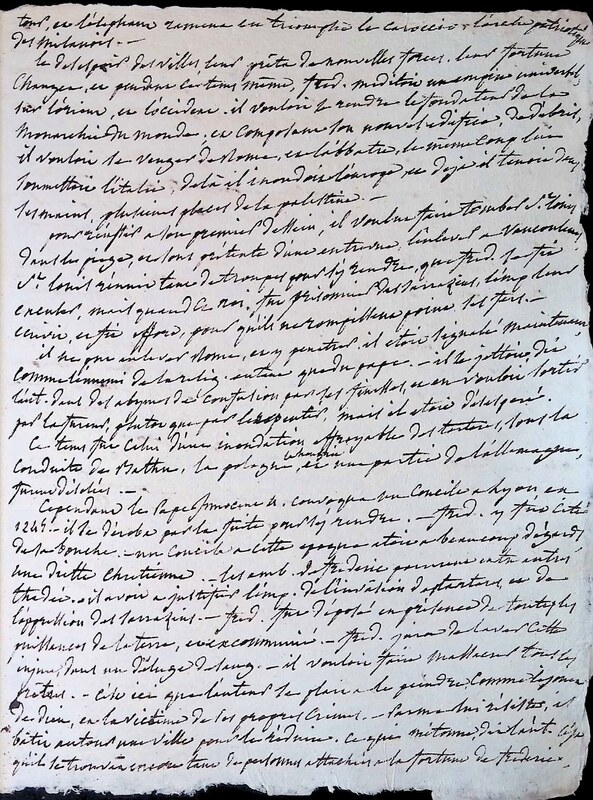 tous, en l'éléphant ramena en triomphe le caroccio l'arche patriotique
des milanois. —
le desespoir des villes leur prêta de nouvelles forces. leur fortune
changea, en pendant ce tems même, fred. meditoit un empire universel
sur l'orient, en l'occident. il vouloit se rendre le fondateur de la
monarchie du monde. en composant son nouvel edifice, de debris,
il vouloit se venger de Rome, en l'abbatre, le même coup lui
soumettoit l'italie, delà il inondoit l'europe, en déja il tenoit dans
ses mains, plusieurs places de la palestine. —
pour réussir a son premier dessein, il voulut faire tomber St. Louis
dans les pieges, en sous prétexte d'une entrevue, l'enlever a Vaucouleurs
St. Louis réunit tant de troupes pour s'y rendre, que fred. se fit
excuser, mais quand ce roi, fut prisonnier des Sarrazins, l'emp. leur
écrivit, en fit offre, pour qu'ils ne rompissent point ses fers. —
il ne put enlever Rome, en y penetrer, il étoit signalé maintenant
comme l'ennemi de la relig. autant que du pape. — il se jettoit, dit
l'aut. dans des abymes de confusion par ses finesses, en en vouloit sortir
par la fureur, plutot que par le repentir, mais il étoit desesperé.
Ce tems fut celui d'une inondation effroyable des tartares, sous la
conduite de Bathu, la pologne, la hongrie, en une partie de l'allemagne,
furent désolées. —
Cependant le Pape Innocent 4. convoqua un Concile a Lyon en
1245. — il se déroba par la fuite pour s'y rendre. — fred. y fut cité
de sa bouche. — un Concile a cette epoque étoit a beaucoup d'égards
une diette Chretienne. — les amb. de frederic parurent entr'autres
thadée. il avoit a justifier l'emp. de l'invasion des tartares, en de
l'oppression des sarrazins. — fred. fut déposé en présence de toutes les
puissances de la terre, en excommunié. — fred. jura de laver cette
injure, dans un déluge de sang. — il vouloit faire massacrer tous les
prêtres. — c'est ici que l'auteur se plait a le peindre, comme le jouet
de dieu, en la victime de ses propres crimes. — Parme lui résista, il
bâtit autour une ville pour la réduire. ce qui m'étonne, dit l'aut. c'est
qu'il se trouvoit encore tant de personnes attachées a la fortune de frederic.